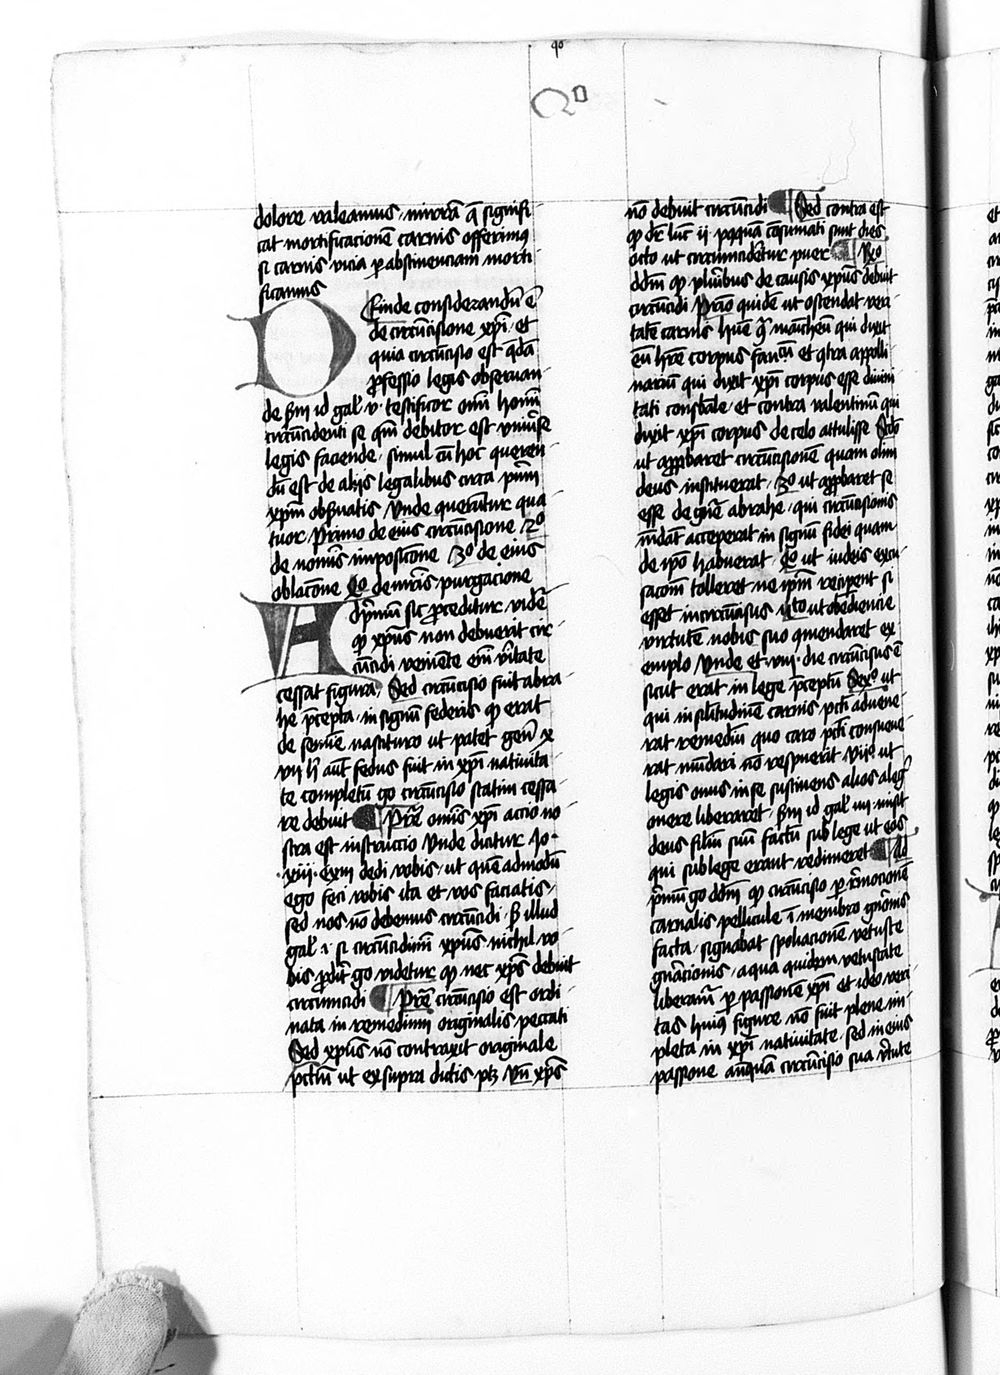 qo
Qº
dolore valeamus / mirrā q̄ signifi
cat mortificationē carnis offerimꝰ
si carnis vicia ꝑ abstinenciam morti
ficamus
DEinde considerandū ē
de circūcisione xp̄i · et
quia circūcisio est q̄dā
ꝓfessio legis obseruan
de s̄m id gal̄ v · testificor om̄i homī
circūcidenti se qm̄ debitor est vniūse
legis faciende / simul cū hoc queren
dū est de alijs legalibus circa puerū
xpm̄ obs̄uatis / Vnde querūtur qua
tuor / Primo de eius circūcisione / 2º
de nomīs imposicōne / 3º de eius
oblacōne / 4º de mr̄is purgacione
AD p̄mū sic ꝓceditur / vidē
ꝙ xp̄us non debuerit cir
cūcidi / veniēte em̄ v̄itate
cessat figura / Sed circūcisio fuit abra
he p̄cepta / in signū federis ꝙ erat
de semīe nascituro ut patet gen̄ x
vii h̄ aūt fedus fuit in xp̄i natiuita
te completū / go circūcisio statim cessa
re debuit ¶ Pret̄ omīs xp̄i actio no
stra est instructio / Vnde dicitur Jo ·
· xiii · exm̄ dedi vobis / ut quēadmodū
ego feci vobis ita et vos faciatis /
sed nos nō debemus circūcidi / s̄m illud
gal̄ · si circūcidim̄ xp̄us nichil vo
bis ꝓdit̄ / go videtur ꝙ nec xp̄s debuit
circumcidi ¶ Pret̄ circūcisio est ordi
nata in remedium originalis peccati
Sed xp̄us nō contraxit originale
pctm̄ ut ex supra dictis ptꝫ / Vn̄ xp̄s
nō debuit circūcidi ¶ Sed contra est
ꝙ dr̄ luc̄ ii p̄quā cōsumati sunt dies
octo ut circumcideretur puer ¶ Rº
dd̄m ꝙ plurībus de causis xp̄us debuit
circūcidi / Primo quidē ut ostendat veri
tatē carnis huān̄e q̄ manicheū qui dixit
eū hr̄e corpus fan̄cū / et ꝯtra appolli
nariū qui dixit xp̄i corpus esse diuini
tati consb̄ale / et contra valentinū qui
dixit xp̄i corpus de celo attulisse / Scdo
ut approbaret circūcisionē quam olim
deus instituerat / 3º ut ꝓbaret se
esse de gn̄ie abrahe / qui circūcisionis
mādatū acceperat in signū fidei quam
de ipō habuerat / 4º ut iudeis excu
sacōm̄ tolleret ne ipm̄ reciperēt si
esset incircūcisus / qīto ut obediencie
virtutē nobis suo cōmendaret ex
emplo / Vnde et · viii · die circūcisus ē
sicut erat in lege p̄ceptū / Sexº ut
qui in similitudinē carnis pcti aduene
rat remediū quo caro pcti consueue
rat mūdari nō respuerit / viiº ut
legis onus in se sustinens alios a leḡ
onere liberaret / s̄m id gal̄ iiii · misit
deus filiū suū factū sub lege ut eos
qui sub lege erant redimeret ¶ Ad
p̄mū go dd̄m ꝙ circūcisio ꝑ rēmocionē
carnalis pellicule ī membro gn̄cionis
facta / signabat spoliacionē vetuste
gn̄acionis / a qua quidem vetustate
liberam̄ ꝑ passionē xp̄i / et ideo veri
tas huiꝰ figure nō fuit plene im
pleta in xp̄i natiuitate / sed in eius
passione / an̄ quam circūcisio sua v̄tute